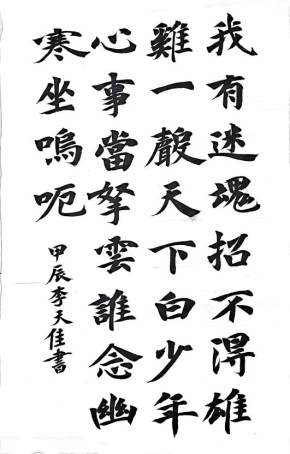 我有迷魂招不得雄
雞一聲天下白少年
心事當拏雲誰念幽
寒坐嗚呃
甲辰李天佳書